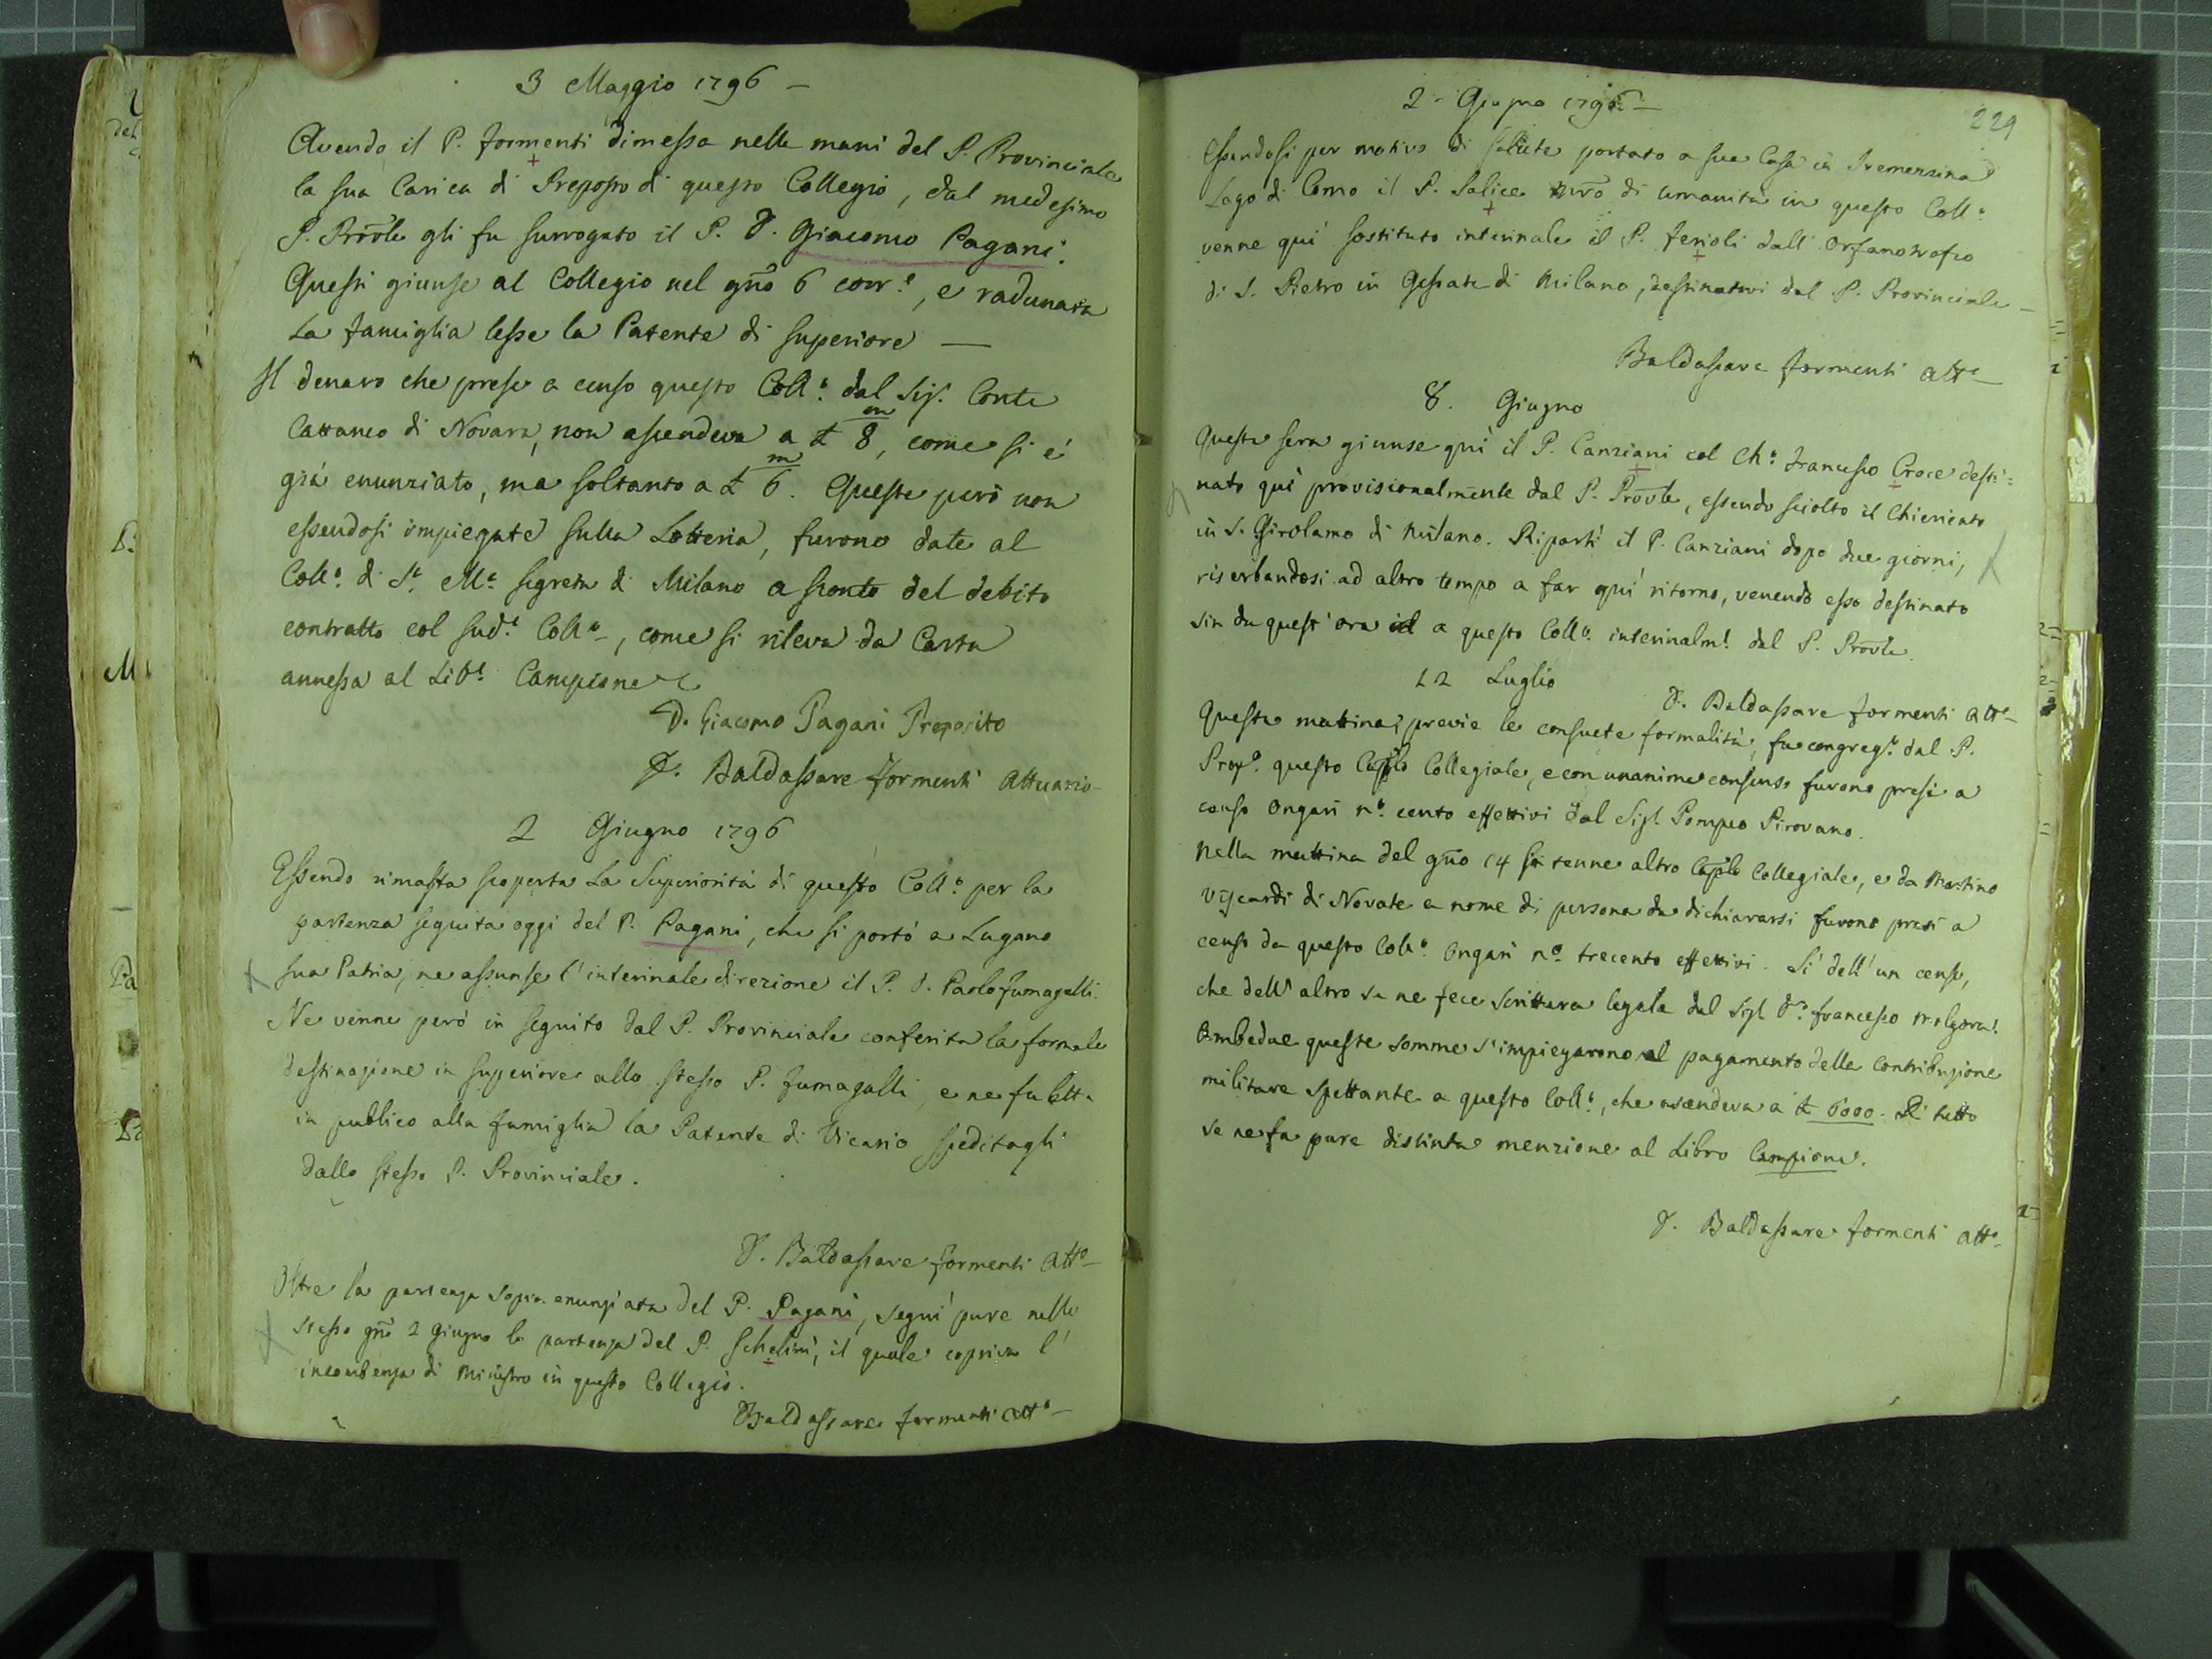 3 Maggio 1796 —
Avendo il P. Formenti dimessa nelle mani del P. Provinciale
la sua Carica di Preposto di questo Collegio, dal medesimo
P. Provle gli fu surrogato il P. D. Giacomo Pagani.
Questi giunse al Collegio nel gno 6 corr.e, e radunata
la famiglia lesse la Patente di Superiore —
Il denaro che prese a censo questo Coll.o dal Sig.r Conte
Cattaneo di Novara, non ascendeva a £ 8m, come si è
già enunziato, ma soltanto a £ 6m. Queste però non
essendosi impiegate sulla Lotteria, furono date al
Coll.o di S.a M.a Segreta di Milano a sconto del debito
contratto col sud.o Coll.o, come si rileva da Carta
annessa al Lib.o Campione
D. Giacomo Pagani Preposito
D. Baldassare Formenti Attuario
2 Giugno 1796
Essendo rimasta scoperta la Superiorità di questo Coll.o per la
partenza seguita oggi del P. Pagani, che si portò a Lugano
sua Patria, ne assunse l'interinale direzione il P. D. Paolo Fumagalli.
Ne venne però in seguito dal P. Provinciale conferita la formale
destinazione in superiore allo stesso P. Fumagalli, e ne fu letta
in publico alla famiglia la Patente di Vicario speditagli
dallo stesso P. Provinciale.
D. Baldassare Formenti Att.o —
Oltre la partenza sopra enunziata del P. Pagani, seguì pure nello
stesso gno 2 Giugno la partenza del P. Schelini, il quale copriva l'
incombenza di Ministro in questo Collegio.
Baldassare Formenti Att.o —
229
2 Giugno 1796 —
Essendosi per motivo di salute portato a sua Casa in Tremezzina
Lago di Como il P. Salice mro di umanità in questo Coll.o
venne quì sostituto interinale il P. Ferioli dall'Orfanotrofio
di S. Pietro in Gessate di Milano, destinatovi dal P. Provinciale —
Baldassare Formenti Att.o —
8. Giugno
Questa sera giunse quì il P. Canziani col Ch.o Francesco Croce desti=
nato quì provisionalmente dal P. Provle, essendo sciolto il Chiericato
in S. Girolamo di Milano. Ripartì il P. Canziani dopo due giorni,
riserbandosi ad altro tempo a far quì ritorno, venendo esso destinato
sin da quest'ora a questo Coll.o interinalm.te dal P. Provle.
12 Luglio
D. Baldassare Formenti Att.o —
Questa mattina, previe le consuete formalità, fu congreg.to dal P.
Prep.o questo Caplo Collegiale, e con unanime consenso furono presi a
censo Ongari n.o cento effettivi dal Sig.r Pompeo Pirovano.
Nella mattina del gno 14 si tenne altro Caplo Collegiale, e da Martino
Viscardi di Novate a nome di persona da dichiararsi furono presi a
censo da questo Coll.o Ongari n.o trecento effettivi. Sì dell'un censo,
che dell'altro se ne fece scrittura legale dal Sig.r D.r Francesco Molgora.
Ambedue queste somme s'impiegarono al pagamento della Contribuzione
militare spettante a questo Coll.o, che ascendeva a £ 6000. Di tutto
se ne fa pure distinta menzione al Libro Campione.
D. Baldassare Formenti Att.o —